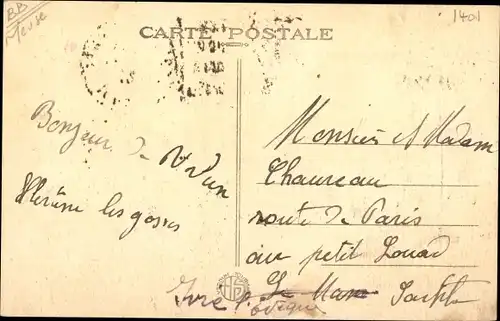 BB
Meuse
1401
CARTE POSTALE
Bonjour de Verdun
les gosses
Monsieur et Madame
Chaureau
route de Paris
au petit Louard
Le Mans Sarthe
Yvré l'Evêque